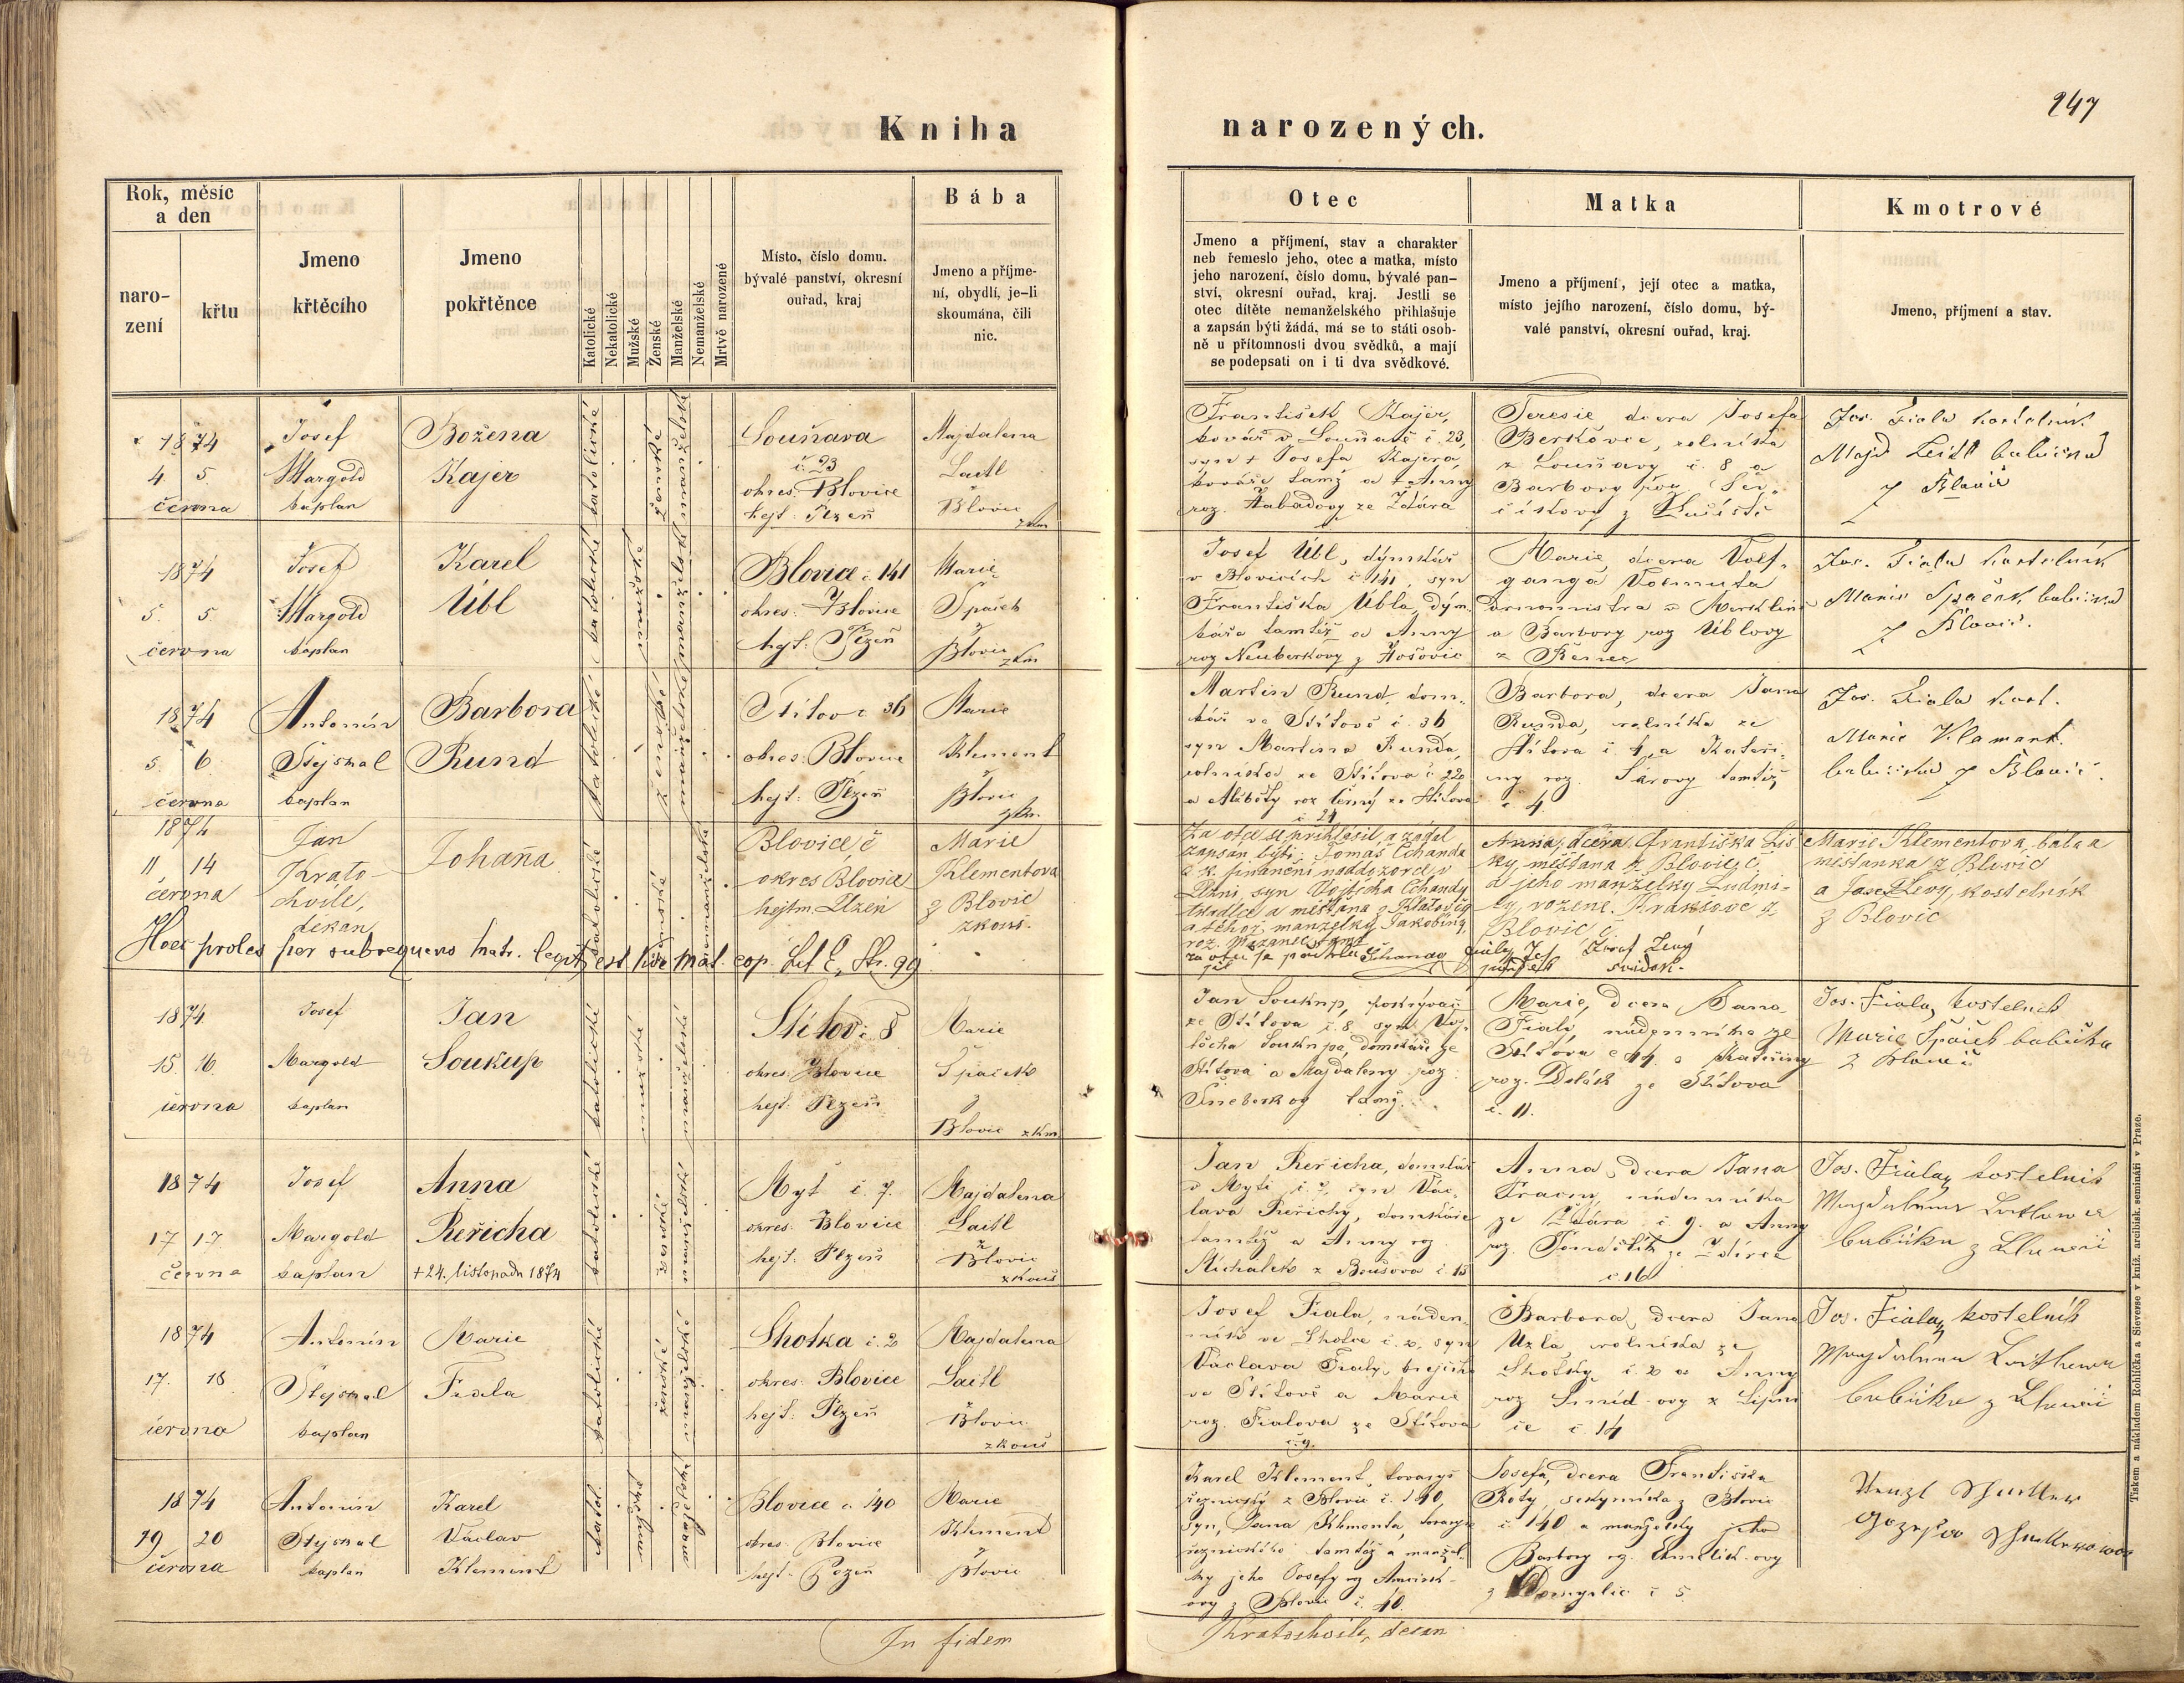 247
Kniha
narozených.
Rok, měsíc
a den
naro-
zení
křtu
Jmeno
křtěcího
Jmeno
pokřtěnce
Katolické
Nekatolické
Mužské
Ženské
Manželské
Nemanželské
Mrtvě narozené
Místo, číslo domu.
bývalé panství, okresní
ouřad, kraj
Bába
Jmeno a příjme-
ní, obydlí, je-li
skoumána, čili
nic.
Otec
Jmeno a příjmení, stav a charakter
neb řemeslo jeho, otec a matka, místo
jeho narození, číslo domu, bývalé pan-
ství, okresní ouřad, kraj. Jestli se
otec dítěte nemanželského přihlašuje
a zapsán býti žádá, má se to státi osob-
ně u přítomnosti dvou svědků, a mají
se podepsati on i ti dva svědkové.
Matka
Jmeno a příjmení, její otec a matka,
místo jejího narození, číslo domu, bý-
valé panství, okresní ouřad, kraj.
Kmotrové
Jmeno, příjmení a stav.
1874
4 5
června
Josef
Margold
kaplan
Božena
Kajer
katolické
ženské
manželské
Louňava
č. 23
okres: Blovice
hejt: Plzeň
Majdalena
Laitl
z
Blovic
zkm
František Kajer,
kovář v Louňavě č. 23,
syn + Josefa Kajera,
kováře tamž a + Anny
roz. Habadovy ze Ždára
Teresie dcera Josefa
Berkovce, rolníka
z Louňavy č. 8 a
Barbory roz.
Jos. Fiala kostelník
Majd Leitl babička
z Blovic
1874
5. 5
června
Josef
Margold
kaplan
Karel
Übl
katolické
mužské
manželské
Blovice č 141
okres: Blovice
hejt: Plzeň
Marie
Špaček
z
Blovic
zkm
Josef Übl, dýmkář
v Blovicích č 141, syn
Františka Übla, dým
káře tamtéž a Anny
roz Neuberkovy z Hošovic
Marie, dcera Volf-
ganga
a Barbory roz Üblovy
z Řenec
Jos. Fiala kostelník
Marie Špaček babička
z Blovic.
1874
5. 6
června
Antonín
Stejskal
kaplan
Barbora
Rund
katolické
ženské
manželské
Štítov č 36
okres: Blovice
hejt: Plzeň
Marie
Klement
z
Blovic
zkm.
Martin Rund, dom-
kář ve Štítově č. 36
syn Martina Runda,
rolníka ze Štítova č. 22
a Alžběty roz Černý ze Štítova
č. 21
Barbora, dcera Jana
Runda, rolníka ze
Štítova č 4, a Kateři-
ny roz. Sárovy tamtéž
č. 4
Jos. Fiala kost.
Marie Klement.
babička z Blovic.
1874
11 14
června
Jan
Krato-
chvíle,
děkan
Johana
katolické
ženské
nemanželské
Blovice č
okres Blovice
hejtm. Plzeň
Marie
Klementova
z Blovic
zkouš.
Za otce se přihlásil a žádal
zapsán býti Tomáš Čihanda
c. k. finanční naddozorce v
Plzni, syn Vojtěcha Čihandy
a měšťana z Klatov
a téhož manželky Jakobiny
roz.
Anna, dcera Františka Liš
ky, měšťana z Blovic č
a jeho manželky Ludmi-
ly, rozené
Blovic č.
Marie Klementova, bába a
měšťanka z Blovic
a Josef Levý, kostelník
z Blovic
Hoec proles per subsequens matr. legit est vide mat. cop. Lit E, Str. 99
Josef Levý
svědek.
1874
15. 16.
června
Josef
Margold
kaplan
Jan
Soukup
katolické
mužské
manželské
Štítov č. 8
okres: Blovice
hejt: Plzeň
Marie
Špaček
z
Blovic zkm
Jan Soukup, pokrývač
ze Štítova č. 8, syn Voj-
těcha Soukupa, domkáře ze
Štítova a Majdaleny roz
tamž.
Marie, dcera Jana
Fialy, nádenníka ze
Štítova č 44 a Kateřiny
roz. ze Štítova
č. 11.
Jos. Fiala, kostelník
Marie Špaček babička
z Blovic
1874
17 17
června
Josef
Margold
kaplan
Anna
Řeřicha
+ 24. listopadu 1874
katolické
ženské
manželské
Myť č. 7.
okres: Blovice
hejt: Plzeň
Majdalena
Laitl
z
Blovic
zkouš
Jan Řeřicha, domkář
v Myti č. 7, syn Vác-
lava Řeřichy, domkáře
tamtéž a Anny roz
Michalek z Boušova č. 15
Anna, dcera Jana
nádenníka
ze Ždára č. 9. a Anny
roz. ze Ždírce
č. 16
Jos. Fiala, kostelník
Magdalena
babička z
1874
17. 18
června
Antonín
Stejskal
kaplan
Marie
Fiala
katolické
ženské
manželské
Lhotka č. 2
okres: Blovice
hejt: Plzeň
Majdalena
Laitl
z
Blovic
zkouš
Josef Fiala, náden-
ník ve Lhotce č. 2, syn
Václava Fialy,
ve Štítově a Marie
roz. Fialova ze Štítova
č. 9.
Barbora, dcera Jana
Uzla, rolníka ze
Lhotky č. 2 a Anny
roz Šmíd-ovy z Lipni
ce č. 14
Jos. Fiala, kostelník
Magdalena
babička z
1874
19 20
června
Antonín
Stejskal
kaplan
Karel
Václav
Klement
katol.
mužské
manželské
Blovice č. 140
okres: Blovice
hejt: Plzeň
Marie
Klement
z
Blovic
Karel Klement, tovaryš
řeznický z Blovic č. 140,
syn, Jana Klementa, tovaryše
řeznického tamtéž a manžel-
ky jeho Josefy roz
ovy z Blovic č. 40
Josefa, dcera Františka
z Blovic
č 140 a manželky jeho
Barbory roz.
z č 5
In fidem
Kratochvíle, decan
Tiskem a nákladem Rohlíčka a Sieverse v kníž. arcibisk. semináři v Praze.